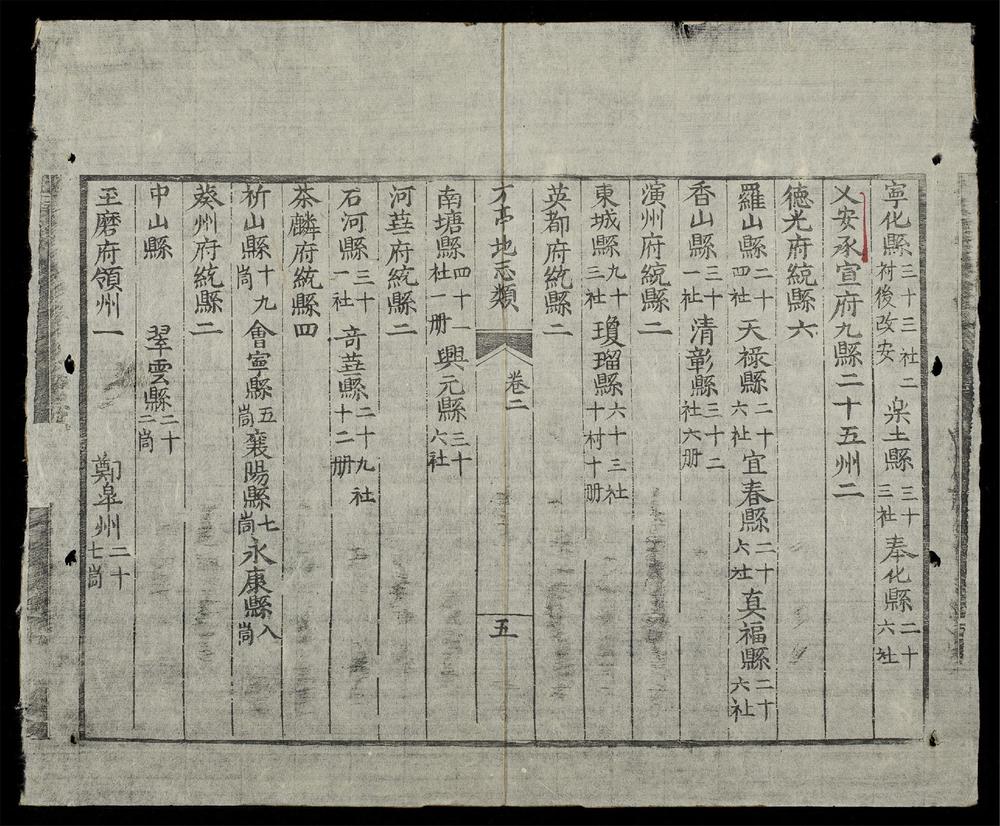 寧化縣三十三社二村後改安 樂土縣三十三社 奉化縣二十六社
乂安承宣府九縣二十五州二
德光府統縣六
羅山縣二十四社 天祿縣二十六社 宜春縣二十六社 真福縣二十六社
香山縣三十一社 清彰縣三十二社六册
演州府統縣二
東城縣九十三社 瓊瑠縣六十三社十村十册
英都府統縣二
方亭地志類 卷二 五
南塘縣四十一社一册 興元縣三十六社
河華府統縣二
石河縣三十一社 奇華縣二十九社十二册
茶麟府統縣四
祈山縣十九峝 會寧縣五峝 襄陽縣七峝 永康縣八峝
葵州府統縣二
中山縣 翠雲縣二十二峝
玉磨府領州一 鄭皐州二十七峝